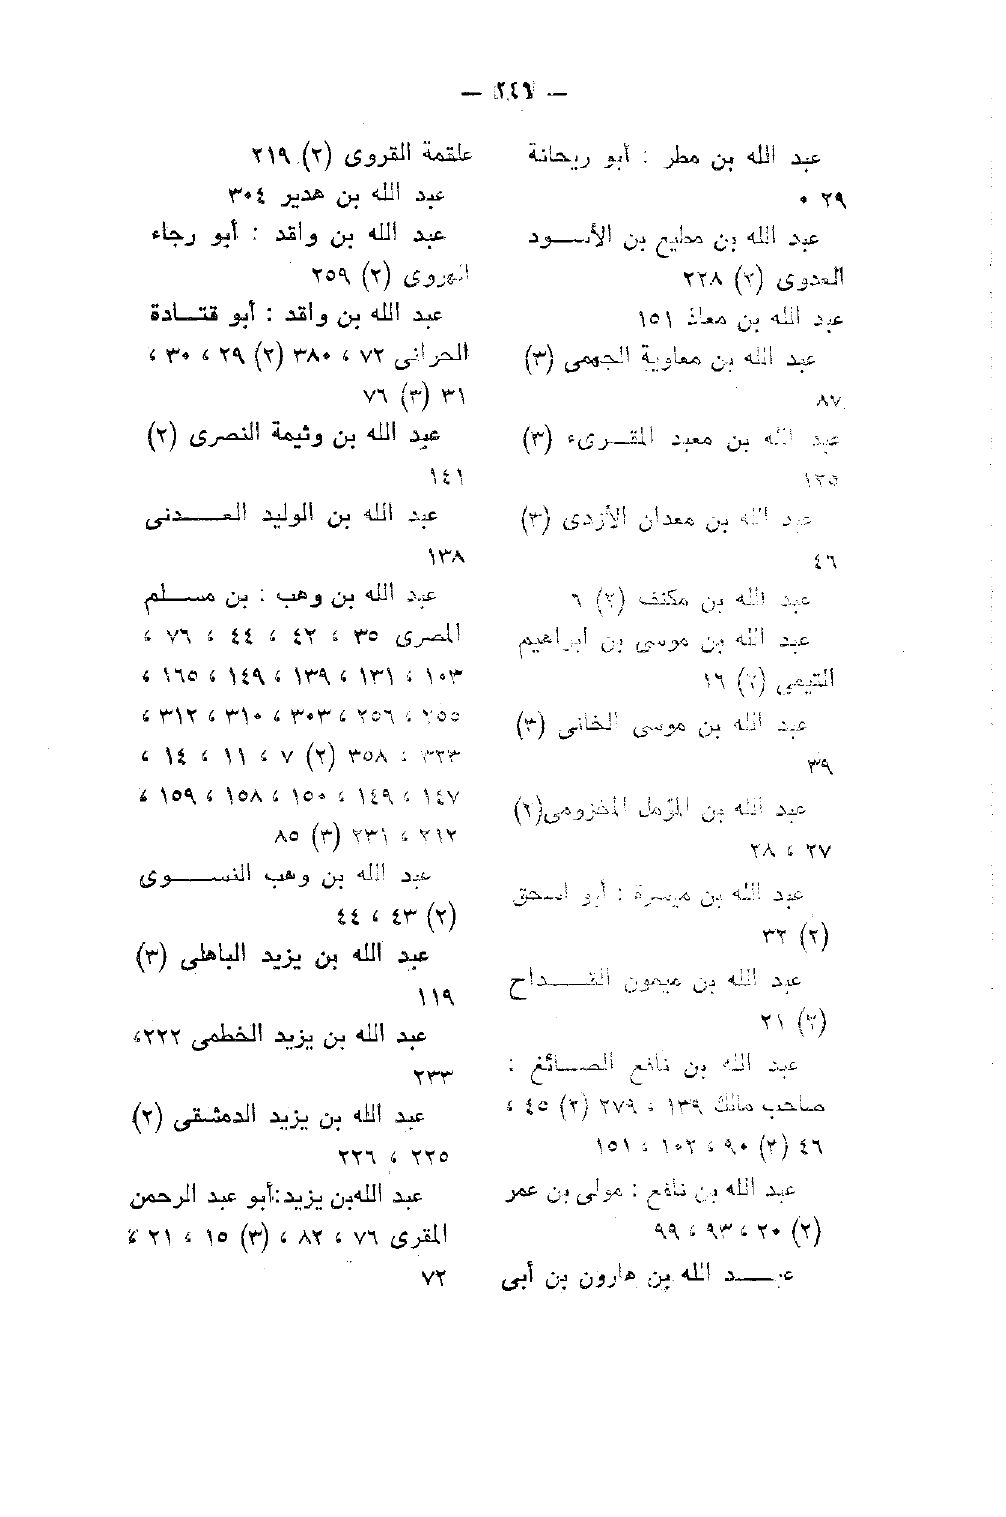 — ٢٤٦ —
عبد الله بن مطر : أبو ريحانة
٢٩ .
عبد الله بن مطيع بن الأســود
العدوى (٢) ٢٢٨
عبد الله بن معاذ ١٥١
عبد الله بن معاوية الجهمى (٣)
٨٧
عبد الله بن معبد المقــرىء (٣)
١٢٥
عبد الله بن معدان الأزدى (٣)
٤٦
عبد الله بن مكنف (٢) ٦
عبد الله بن موسى بن ابراهيم
التيمى (٢) ١٦
عبد الله بن موسى الخانى (٣)
٣٩
عبد الله بن المؤمل المخزومى(٢)
٢٧ ، ٢٨
عبد الله بن ميسرة : أبو اسحق
(٢) ٣٢
عبد الله بن ميمون القــداح
(٣) ٢١
عبد الله بن نافع الصــائغ :
صاحب مالك ١٣٩ ، ٢٧٩ (٢) ٤٥ ،
٤٦ (٢) ٩٠ ، ١٠٢ ، ١٥١
عبد الله بن نافع : مولى بن عمر
(٢) ٢٠ ، ٩٣ ، ٩٩
عبــد الله بن هارون بن أبى
علقمة القروى (٢) ٢١٩
عبد الله بن هدير ٣٠٤
عبد الله بن واقد : أبو رجاء
الهروى (٢) ٢٥٩
عبد الله بن واقد : أبو قتــادة
الحرانى ٧٢ ، ٣٨٠ (٢) ٢٩ ، ٣٠ ،
٣١ (٣) ٧٦
عبد الله بن وثيمة النصرى (٢)
١٤١
عبد الله بن الوليد العــدنى
١٣٨
عبد الله بن وهب : بن مســلم
المصرى ٣٥ ، ٤٢ ، ٤٤ ، ٧٦ ،
١٠٣ ، ١٣١ ، ١٣٩ ، ١٤٩ ، ١٦٥ ،
٢٥٥ ، ٢٥٦ ، ٣٠٣ ، ٣١٠ ، ٣١٢ ،
٣٢٣ ، ٣٥٨ (٢) ٧ ، ١١ ، ١٤ ،
١٤٧ ، ١٤٩ ، ١٥٠ ، ١٥٨ ، ١٥٩ ،
٢١٢ ، ٢٣١ (٣) ٨٥
عبد الله بن وهب النســوى
(٢) ٤٣ ، ٤٤
عبد الله بن يزيد الباهلى (٣)
١١٩
عبد الله بن يزيد الخطمى ٢٢٢،
٢٣٣
عبد الله بن يزيد الدمشقى (٢)
٢٢٥ ، ٢٢٦
عبد الله بن يزيد:أبو عبد الرحمن
المقرى ٧٦ ، ٨٢ ، (٣) ١٥ ، ٢١ ،
٧٢